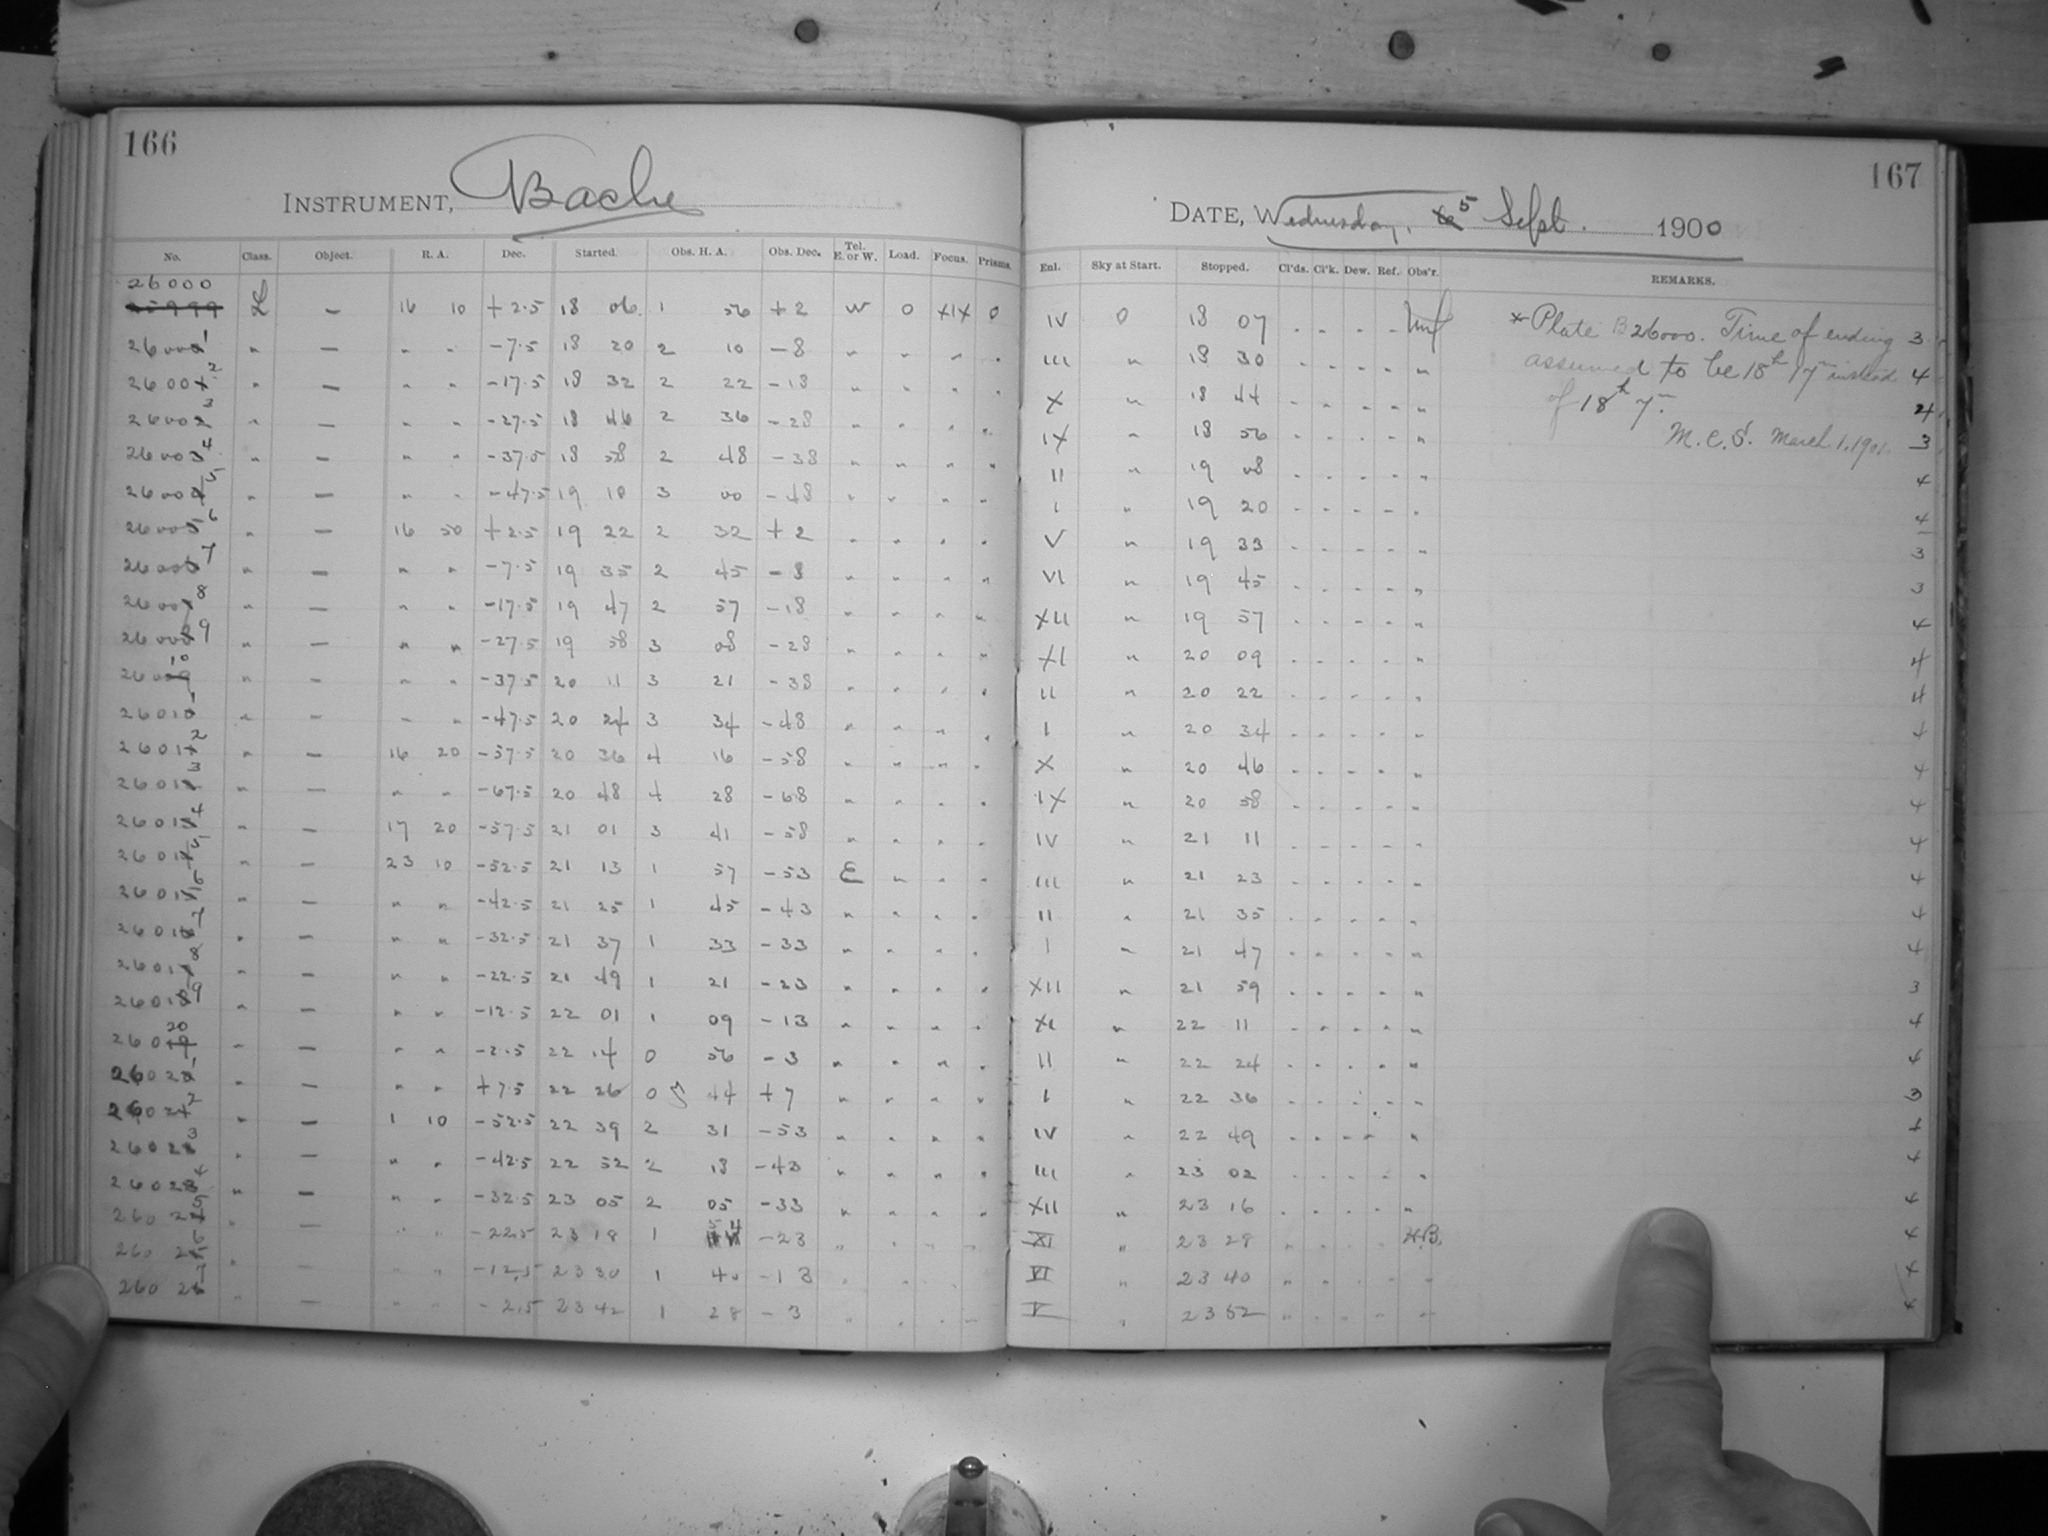 166
INSTRUMENT, Bache
No. Class. Object. R. A. Dec. Started. Obs. H. A. Obs. Dec. Tel. E. or W. Load. Focus. Prisms.
26000
25999 L — 16 10 +2.5 18 06 1 56 +2 W 0 XIX 0
26001 " — " " -7.5 18 20 2 10 -8 " " " "
26002 " — " " -17.5 18 32 2 22 -18 " " " "
26003 " — " " -27.5 18 46 2 36 -28 " " " "
26004 " — " " -37.5 18 58 2 48 -38 " " " "
26005 " — " " -47.5 19 10 3 00 -48 " " " "
26006 " — 16 50 +2.5 19 22 2 32 +2 " " " "
26007 " — " " -7.5 19 35 2 45 -8 " " " "
26008 " — " " -17.5 19 47 2 57 -18 " " " "
26009 " — " " -27.5 19 58 3 08 -28 " " " "
26010 " — " " -37.5 20 11 3 21 -38 " " " "
26011 " — " " -47.5 20 24 3 34 -48 " " " "
26012 " — 16 20 -57.5 20 36 4 16 -58 " " " "
26013 " — " " -67.5 20 48 4 28 -68 " " " "
26014 " — 17 20 -57.5 21 01 3 41 -58 " " " "
26015 " — 23 10 -52.5 21 13 1 57 -53 E " " "
26016 " — " " -42.5 21 25 1 45 -43 " " " "
26017 " — " " -32.5 21 37 1 33 -33 " " " "
26018 " — " " -22.5 21 49 1 21 -23 " " " "
26019 " — " " -12.5 22 01 1 09 -13 " " " "
26020 " — " " -2.5 22 14 0 56 -3 " " " "
26021 " — " " +7.5 22 26 0 44 +7 " " " "
26022 " — 1 10 -52.5 22 39 2 31 -53 " " " "
26023 " — " " -42.5 22 52 2 18 -43 " " " "
26024 " — " " -32.5 23 05 2 05 -33 " " " "
26025 " — " " -22.5 23 18 1 54 -23 " " " "
26026 " — " " -12.5 23 30 1 40 -13 " " " "
26027 " — " " -2.5 23 42 1 28 -3 " " " "
167
DATE, Wednesday, 5 Sept. 1900
Enl. Sky at Start. Stopped. Cl'ds. Cl'k. Dew. Ref. Obs'r. REMARKS.
IV 0 18 07 " " " " *Plate B26000. Time of ending 3
III " 18 30 " " " " " assumed to be 18h 17m instead 4
X " 18 44 " " " " " of 18h 7m. 4
IX " 18 56 " " " " " M.C.S. March 1, 1901. 3
II " 19 08 " " " " " 4
I " 19 20 " " " " " 4
V " 19 33 " " " " " 3
VI " 19 45 " " " " " 3
XII " 19 57 " " " " " 4
XI " 20 09 " " " " " 4
II " 20 22 " " " " " 4
I " 20 34 " " " " " 4
X " 20 46 " " " " " 4
IX " 20 58 " " " " " 4
IV " 21 11 " " " " " 4
III " 21 23 " " " " " 4
II " 21 35 " " " " " 4
I " 21 47 " " " " " 4
XII " 21 59 " " " " " 3
XI " 22 11 " " " " " 4
II " 22 24 " " " " " 4
I " 22 36 " " " " " 3
IV " 22 49 " " " " " 4
III " 23 02 " " " " " 4
XII " 23 16 " " " " " 4
XI " 23 28 " " " " H.B. 4
VI " 23 40 " " " " " 4
V " 23 52 " " " " " 4